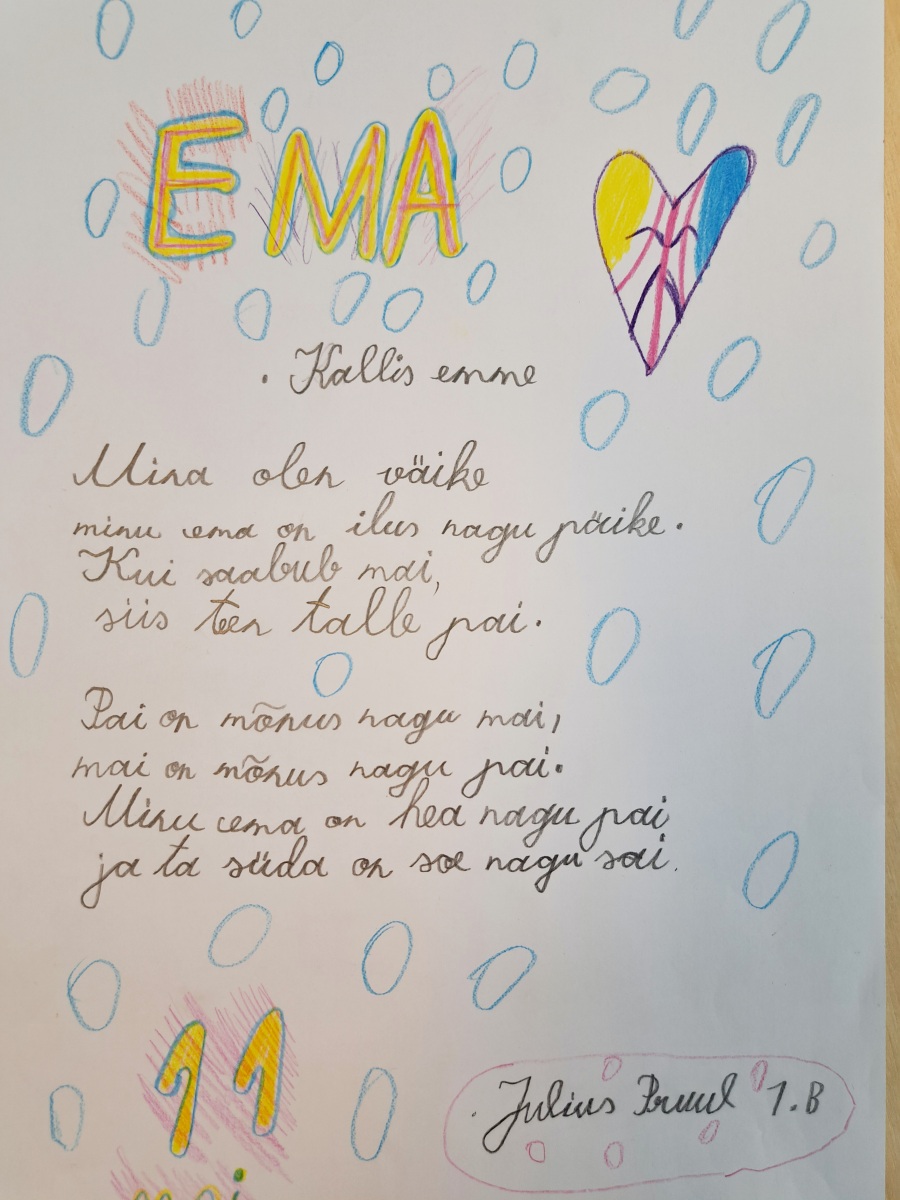 EMA
Kallis emme
Mina olen väike
minu ema on ilus nagu päike.
Kui saabub mai,
siis teen talle pai.
Pai on mõnus nagu mai,
mai on mõnus nagu pai.
Minu ema on hea nagu pai
ja ta süda on soe nagu sai.
11
mai
Julius Pruul 1.B